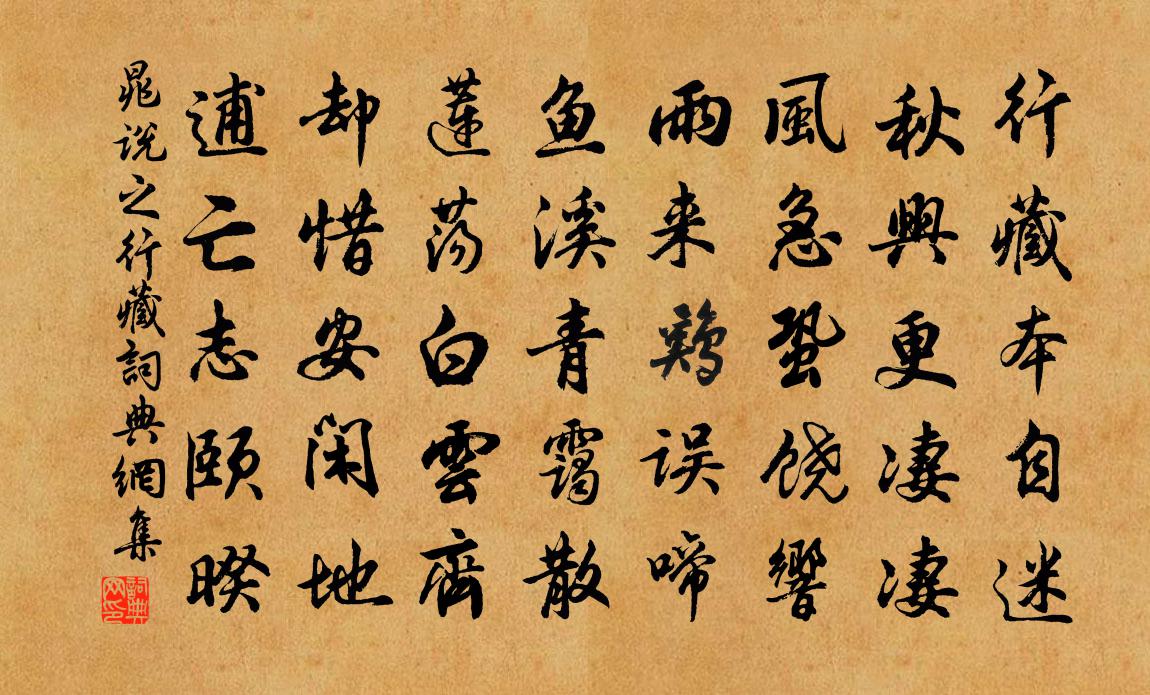 行藏本自迷
秋興更凄凄
風急蛩饶響
雨来鷄误啼
鱼溪青靄散
蓮荡白雲齊
却惜安闲地
逋亡志頤暌
晁說之行藏詞典網集
詞典网印